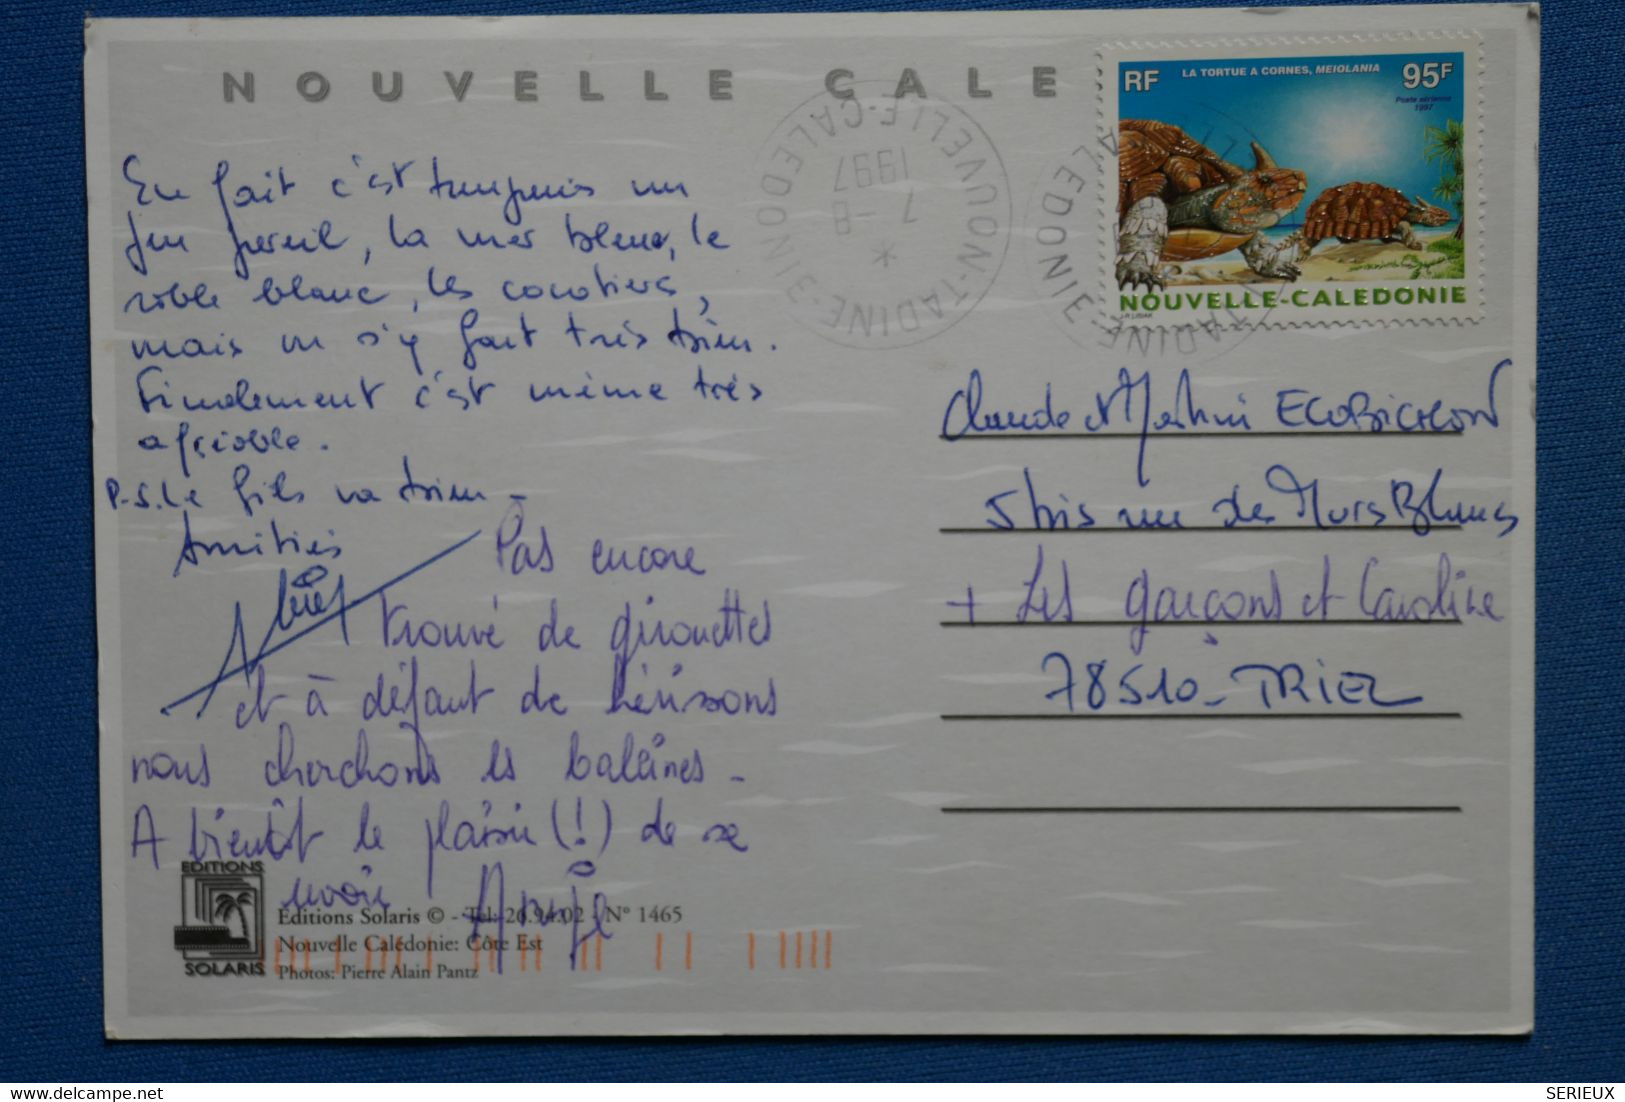 NOUVELLE CALE
RF
LA TORTUE A CORNES, MEIOLANIA
95F
Poste aérienne
1997
NOUVELLE-CALEDONIE
J-P. LISIAK
VUON-TADINE
NOUVELLE-CALEDONIE
7-8
1997
*
En fait c'est toujours un
peu pareil, la mer bleue, le
sable blanc, les cocotiers,
mais on s'y fait très bien.
Finalement c'est même très
agréable.
P.S. Le fils va bien -
Amitiés
Pas encore
trouvé de girouettes
et à défaut de hérissons
nous cherchons les baleines -
A bientôt le plaisir (!) de se
revoir
Claude et Martine ECOBICHON
5 bis rue des Murs Blancs
+ Les garçons et Caroline
78510 - TRIEL
EDITIONS
SOLARIS
Editions Solaris © - Tel: 26.94.02 - N° 1465
Nouvelle Calédonie: Côte Est
Photos: Pierre Alain Pantz
delcampe.net
SERIEUX